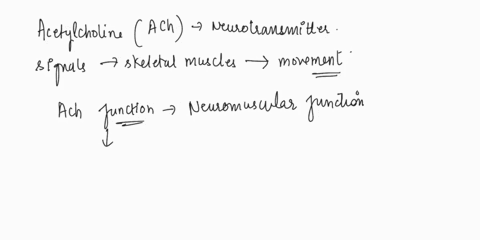 Acetylcholine (ACh) → Neurotransmitter.
signals → skeletal muscles → movement
Ach junction → Neuromuscular junction
↓